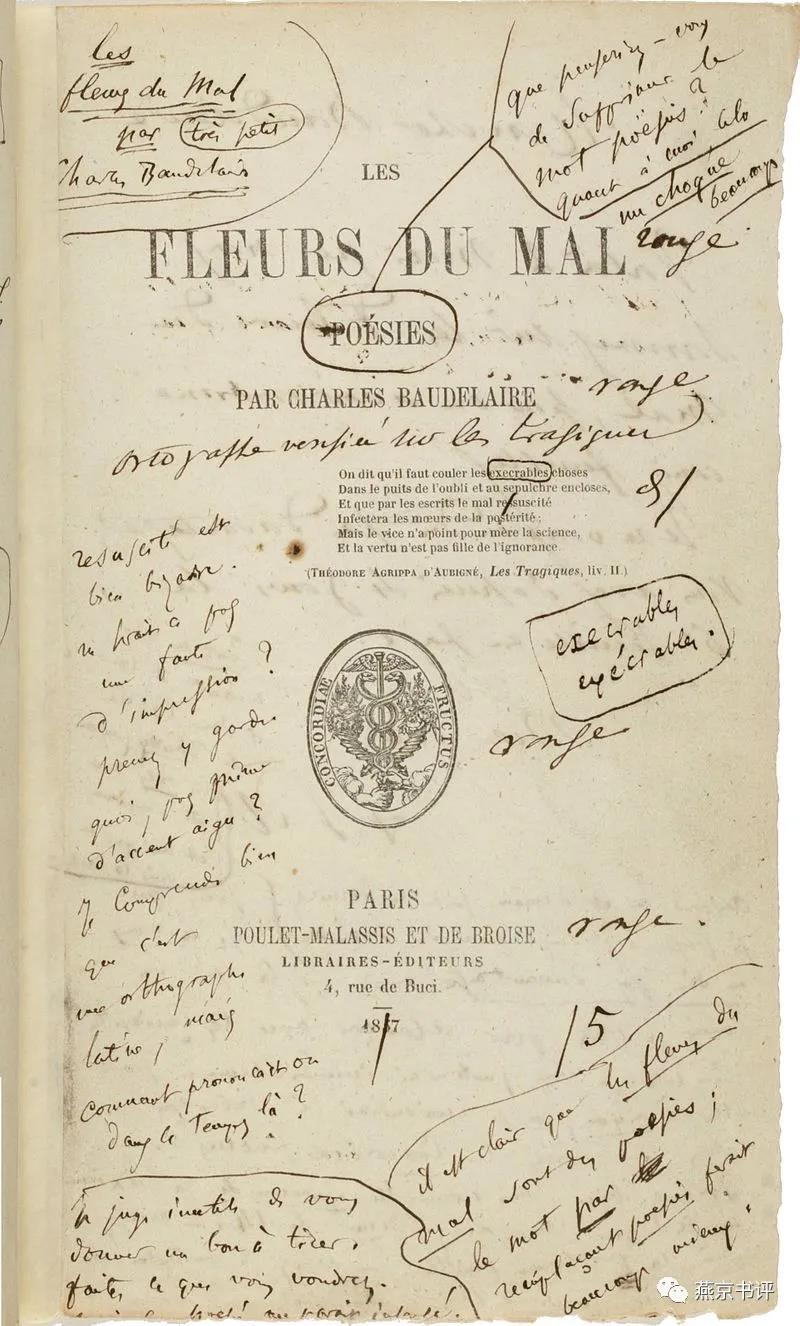 les
fleurs du Mal
par très petit
Charles Baudelaire
que penseriez-vous
de supprimer le
mot poësies ?
quant à moi, cela
me choque
beaucoup
LES
FLEURS DU MAL
rouge.
POÉSIES
PAR CHARLES BAUDELAIRE
rouge
sur les tragiques
On dit qu'il faut couler les execrables choses
Dans le puits de l'oubli et au sepulchre encloses,
Et que par les escrits le mal resuscité
Infectera les mœurs de la postérité ;
Mais le vice n'a point pour mère la science,
Et la vertu n'est pas fille de l'ignorance.
(THÉODORE AGRIPPA D'AUBIGNÉ, Les Tragiques, liv. II.)
resuscité est
bien bizarre.
ne serait-ce pas
une faute
d'impression ?
prenez y garde.
quoi, pas même
d'accent aigu ?
Je comprends bien
que c'est
une orthographe
latine, mais
comment prononçait-on
dans le temps là ?
execrables
exécrables.
CONCORDIAE FRUCTUS
rouge
PARIS
POULET-MALASSIS ET DE BROISE
rouge.
LIBRAIRES-ÉDITEURS
4, rue de Buci.
1857
/5
Je juge inutile de vous
donner un bon à tirer.
faites ce que vous voudrez.
il est clair que les fleurs du
mal sont des poësies ;
le mot par
remplaçant poësies ferait
beaucoup mieux.
燕京书评